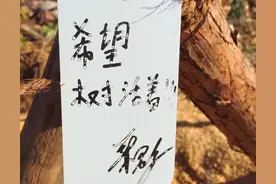 希望
树活着